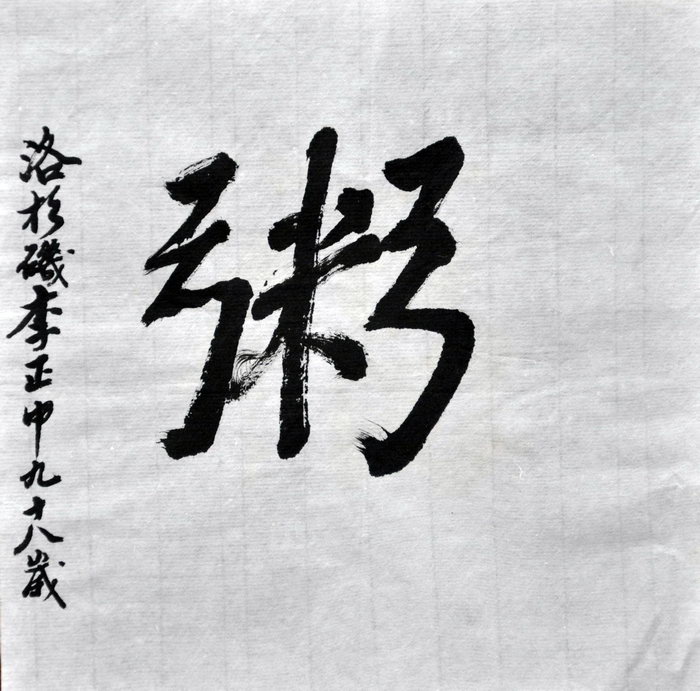 粥
洛杉磯李正中九十八歲